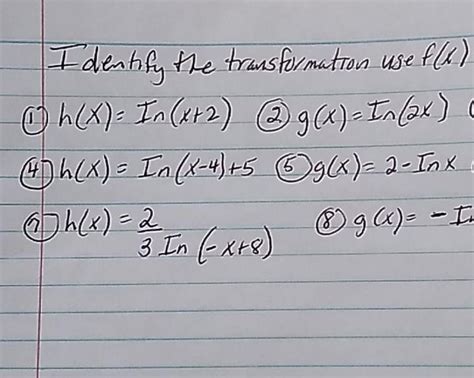 Identify the transformation use f(x)
① h(x) = In(x+2) ② g(x) = In(2x)
④ h(x) = In(x-4)+5 ⑤ g(x) = 2-Inx
⑦ h(x) = 2/3 In(-x+8) ⑧ g(x) = -I